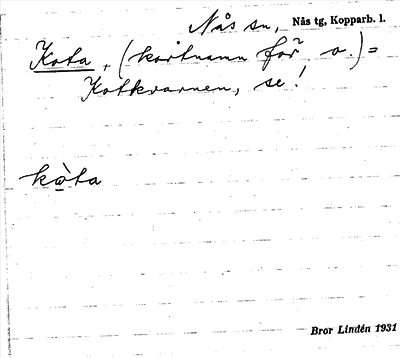 Nås sn, Nås tg, Kopparb. l.
Kota, (kortnamn för o.) =
Kotkvarnen, se!
kòta
Bror Lindén 1931